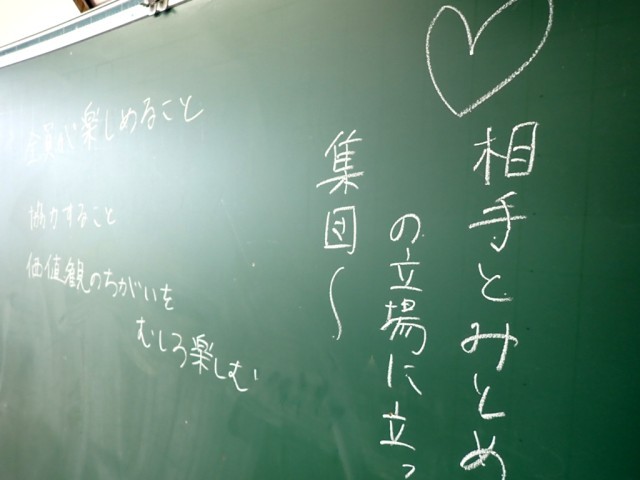 相手とみとめ
の立場に立っ
集団〜
全員が楽しめること
協力すること
価値観のちがいを
むしろ楽しむ